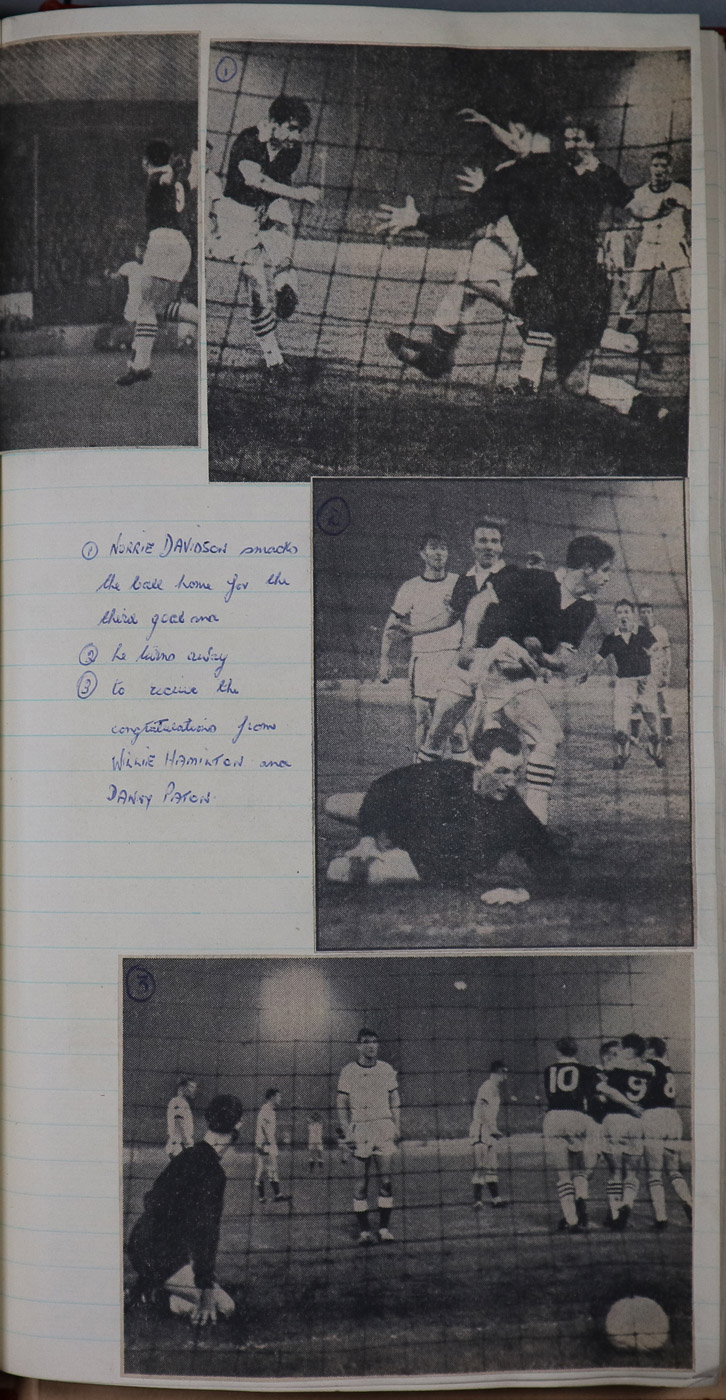 1
9
① NORRIE DAVIDSON smacks
the ball home for the
third goal and
② he turns away
③ to receive the
congratulations from
WILLIE HAMILTON and
DANNY PATON.
2
3
10
9
8